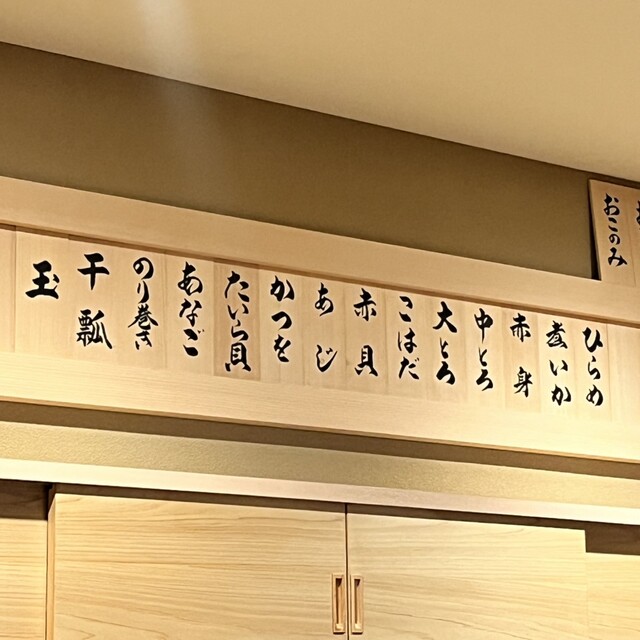 おこのみ
ひらめ
煮いか
赤身
中とろ
大とろ
こはだ
赤貝
あじ
かつを
たいら貝
あなご
のり巻き
干瓢
玉